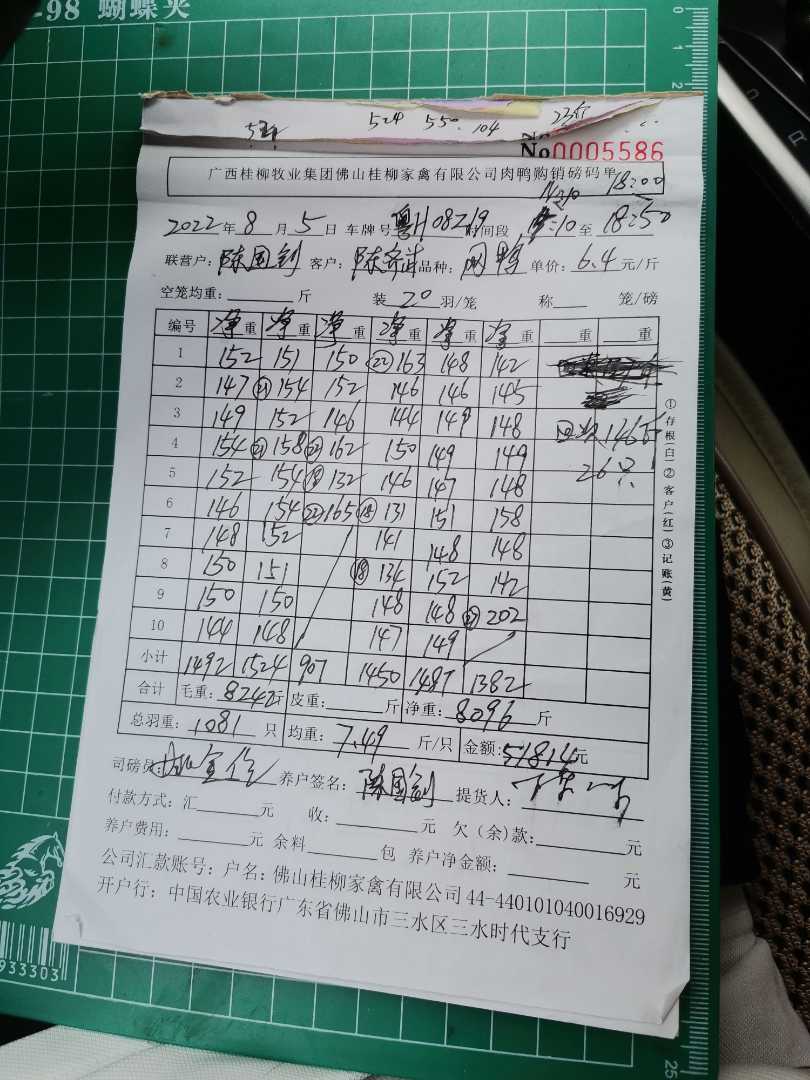 -98 蝴蝶夹
524 550.104
No 0005586
广西桂柳牧业集团佛山桂柳家禽有限公司肉鸭购销磅码单
18:00
2022年8月5日 车牌号粤H08Z19时间段 :10至18:50
联营户:陈国钊 客户:陈齐 品种: 鸭 单价:6.4元/斤
空笼均重:____斤 装20羽/笼 称____笼/磅
编号 净重 净重 净重 净重 净重 净重 重 重
1 152 151 150 ㉒163 148 142
2 147 ㉑154 152 146 146 145
3 149 152 146 144 149 148 回 146斤
4 154 ㉑158 ㉑162 150 149 149 26只
5 152 154 ⑱132 146 147 148
6 146 154 ㉒165 ⑱131 151 158
7 148 152 141 148 148
8 150 151 ⑱134 152 142
9 150 150 148 148 ㉗202
10 144 148 147 149
小计 1492 1524 907 1450 1487 1382
合计 毛重:8242斤 皮重:____斤 净重:8096斤
总羽重:1081只 均重:7.49斤/只 金额:51814元
司磅员: 养户签名:陈国钊 提货人:
付款方式:汇____元 收:____元 欠(余)款:____元
养户费用:____元 余料____包 养户净金额:____元
公司汇款账号:户名:佛山桂柳家禽有限公司44-440101040016929
开户行:中国农业银行广东省佛山市三水区三水时代支行
①存根(白)②客户(红)③记账(黄)
933303
0
1
2
25